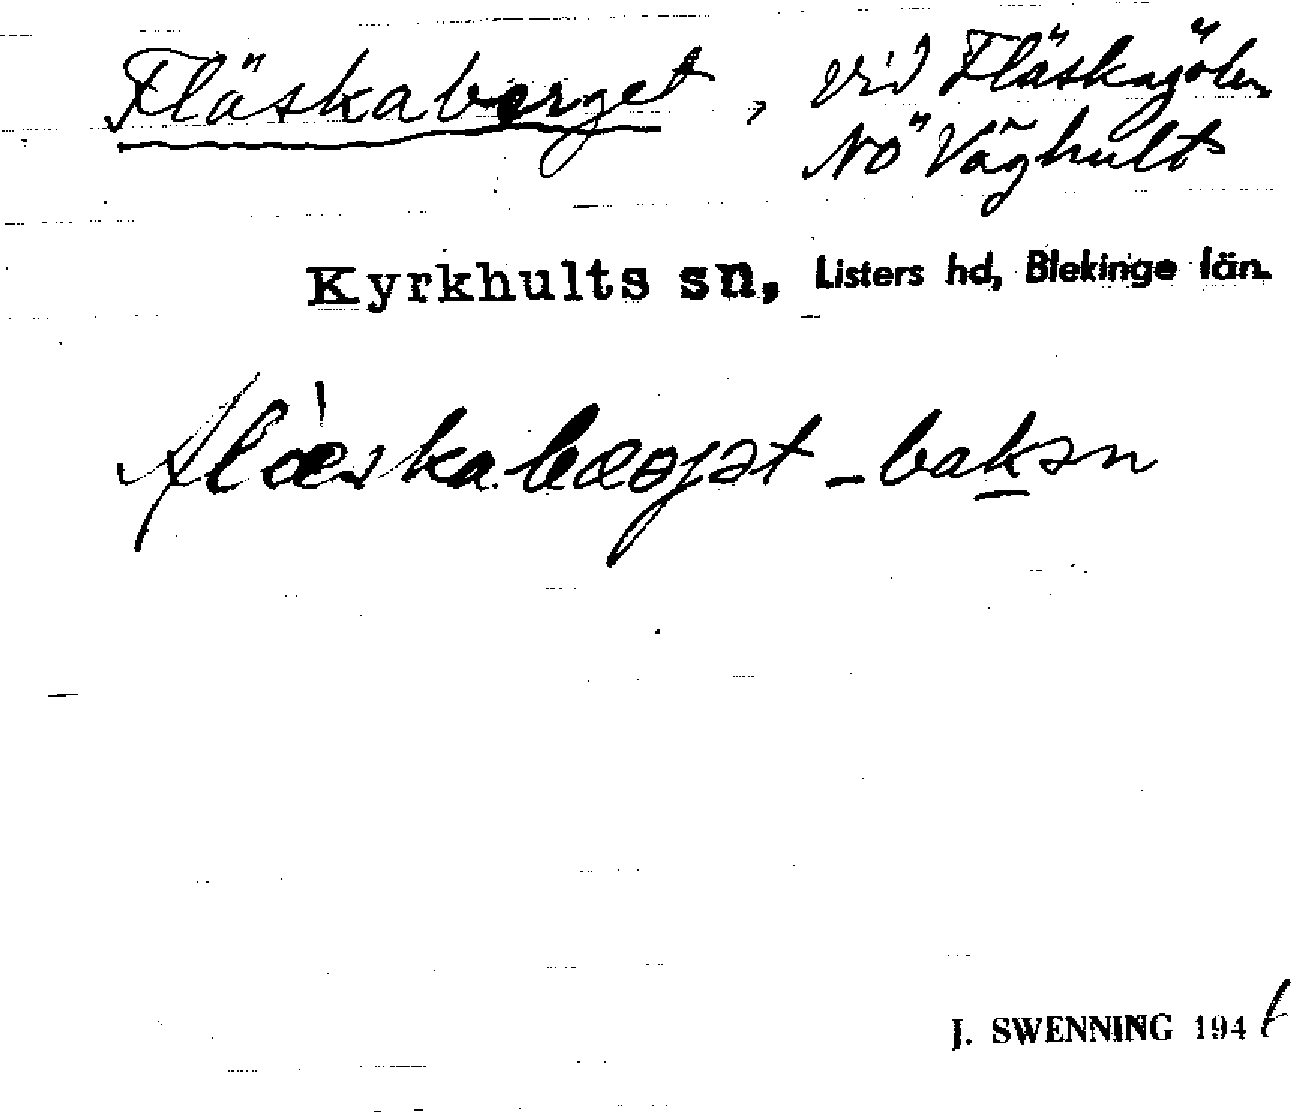 Fläskaberget, vid Fläskagölen
NÖ Väghult
Kyrkhults sn, Listers hd, Blekinge län.
J. SWENNING 194